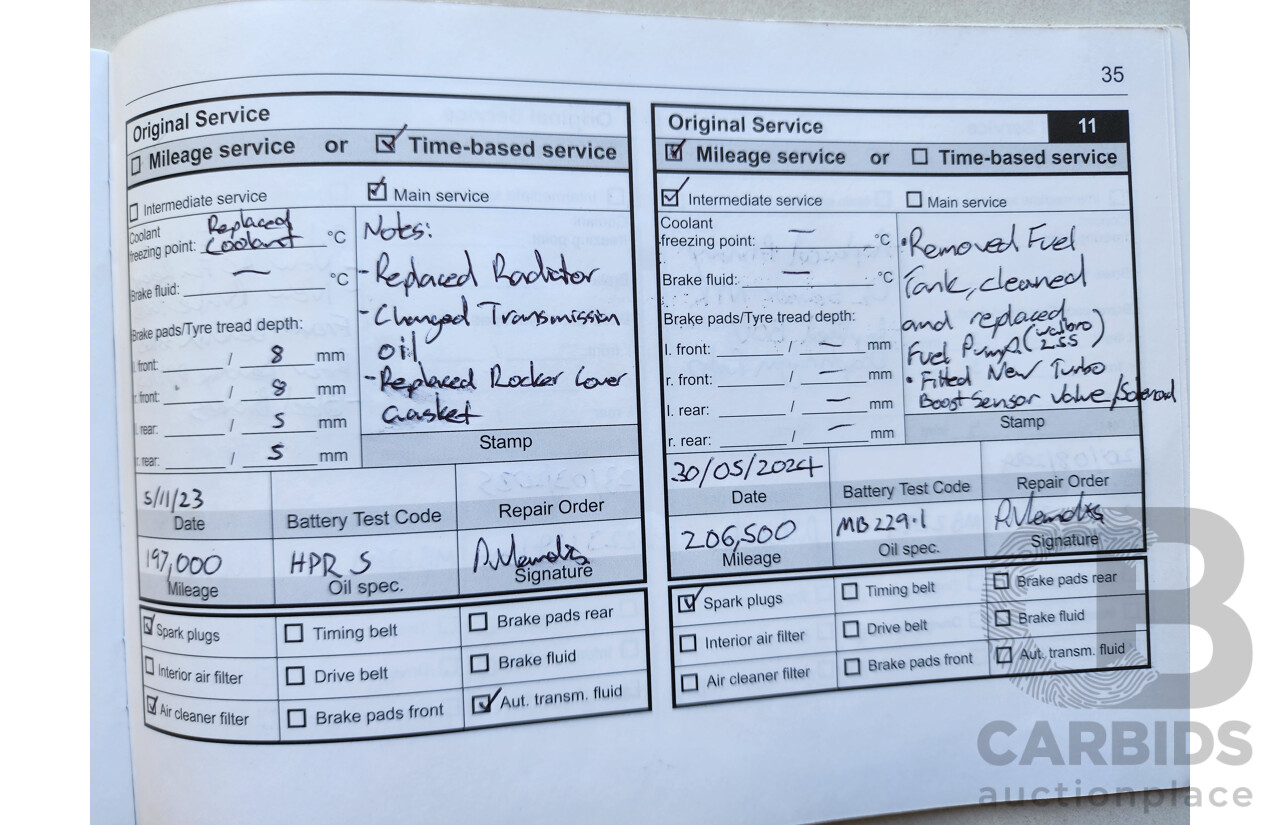 35
Original Service
Mileage service or Time-based service
Intermediate service
Main service
Coolant freezing point: Replaced Coolant °C
Brake fluid: — °C
Brake pads/Tyre tread depth:
l. front: / 8 mm
r. front: / 8 mm
l. rear: / 5 mm
r. rear: / 5 mm
Notes:
- Replaced Radiator
- Changed Transmission
oil
- Replaced Rocker Cover
Gasket
Stamp
5/11/23
Date
Battery Test Code
Repair Order
197,000
Mileage
HPR 5
Oil spec.
Signature
Spark plugs
Timing belt
Brake pads rear
Interior air filter
Drive belt
Brake fluid
Air cleaner filter
Brake pads front
Aut. transm. fluid
Original Service 11
Mileage service or Time-based service
Intermediate service
Main service
Coolant
freezing point: — °C
Brake fluid: — °C
Brake pads/Tyre tread depth:
l. front: / — mm
r. front: / — mm
l. rear: / — mm
r. rear: / — mm
•Removed Fuel
Tank, cleaned
and replaced
Fuel Pump (walbro 255)
• Fitted New Turbo
Boost Sensor valve/Solenoid
Stamp
30/05/2024
Date
Battery Test Code
Repair Order
206,500
Mileage
MB 229.1
Oil spec.
Signature
Spark plugs
Timing belt
Brake pads rear
Interior air filter
Drive belt
Brake fluid
Air cleaner filter
Brake pads front
Aut. transm. fluid
B
CARBIDS
auctionplace